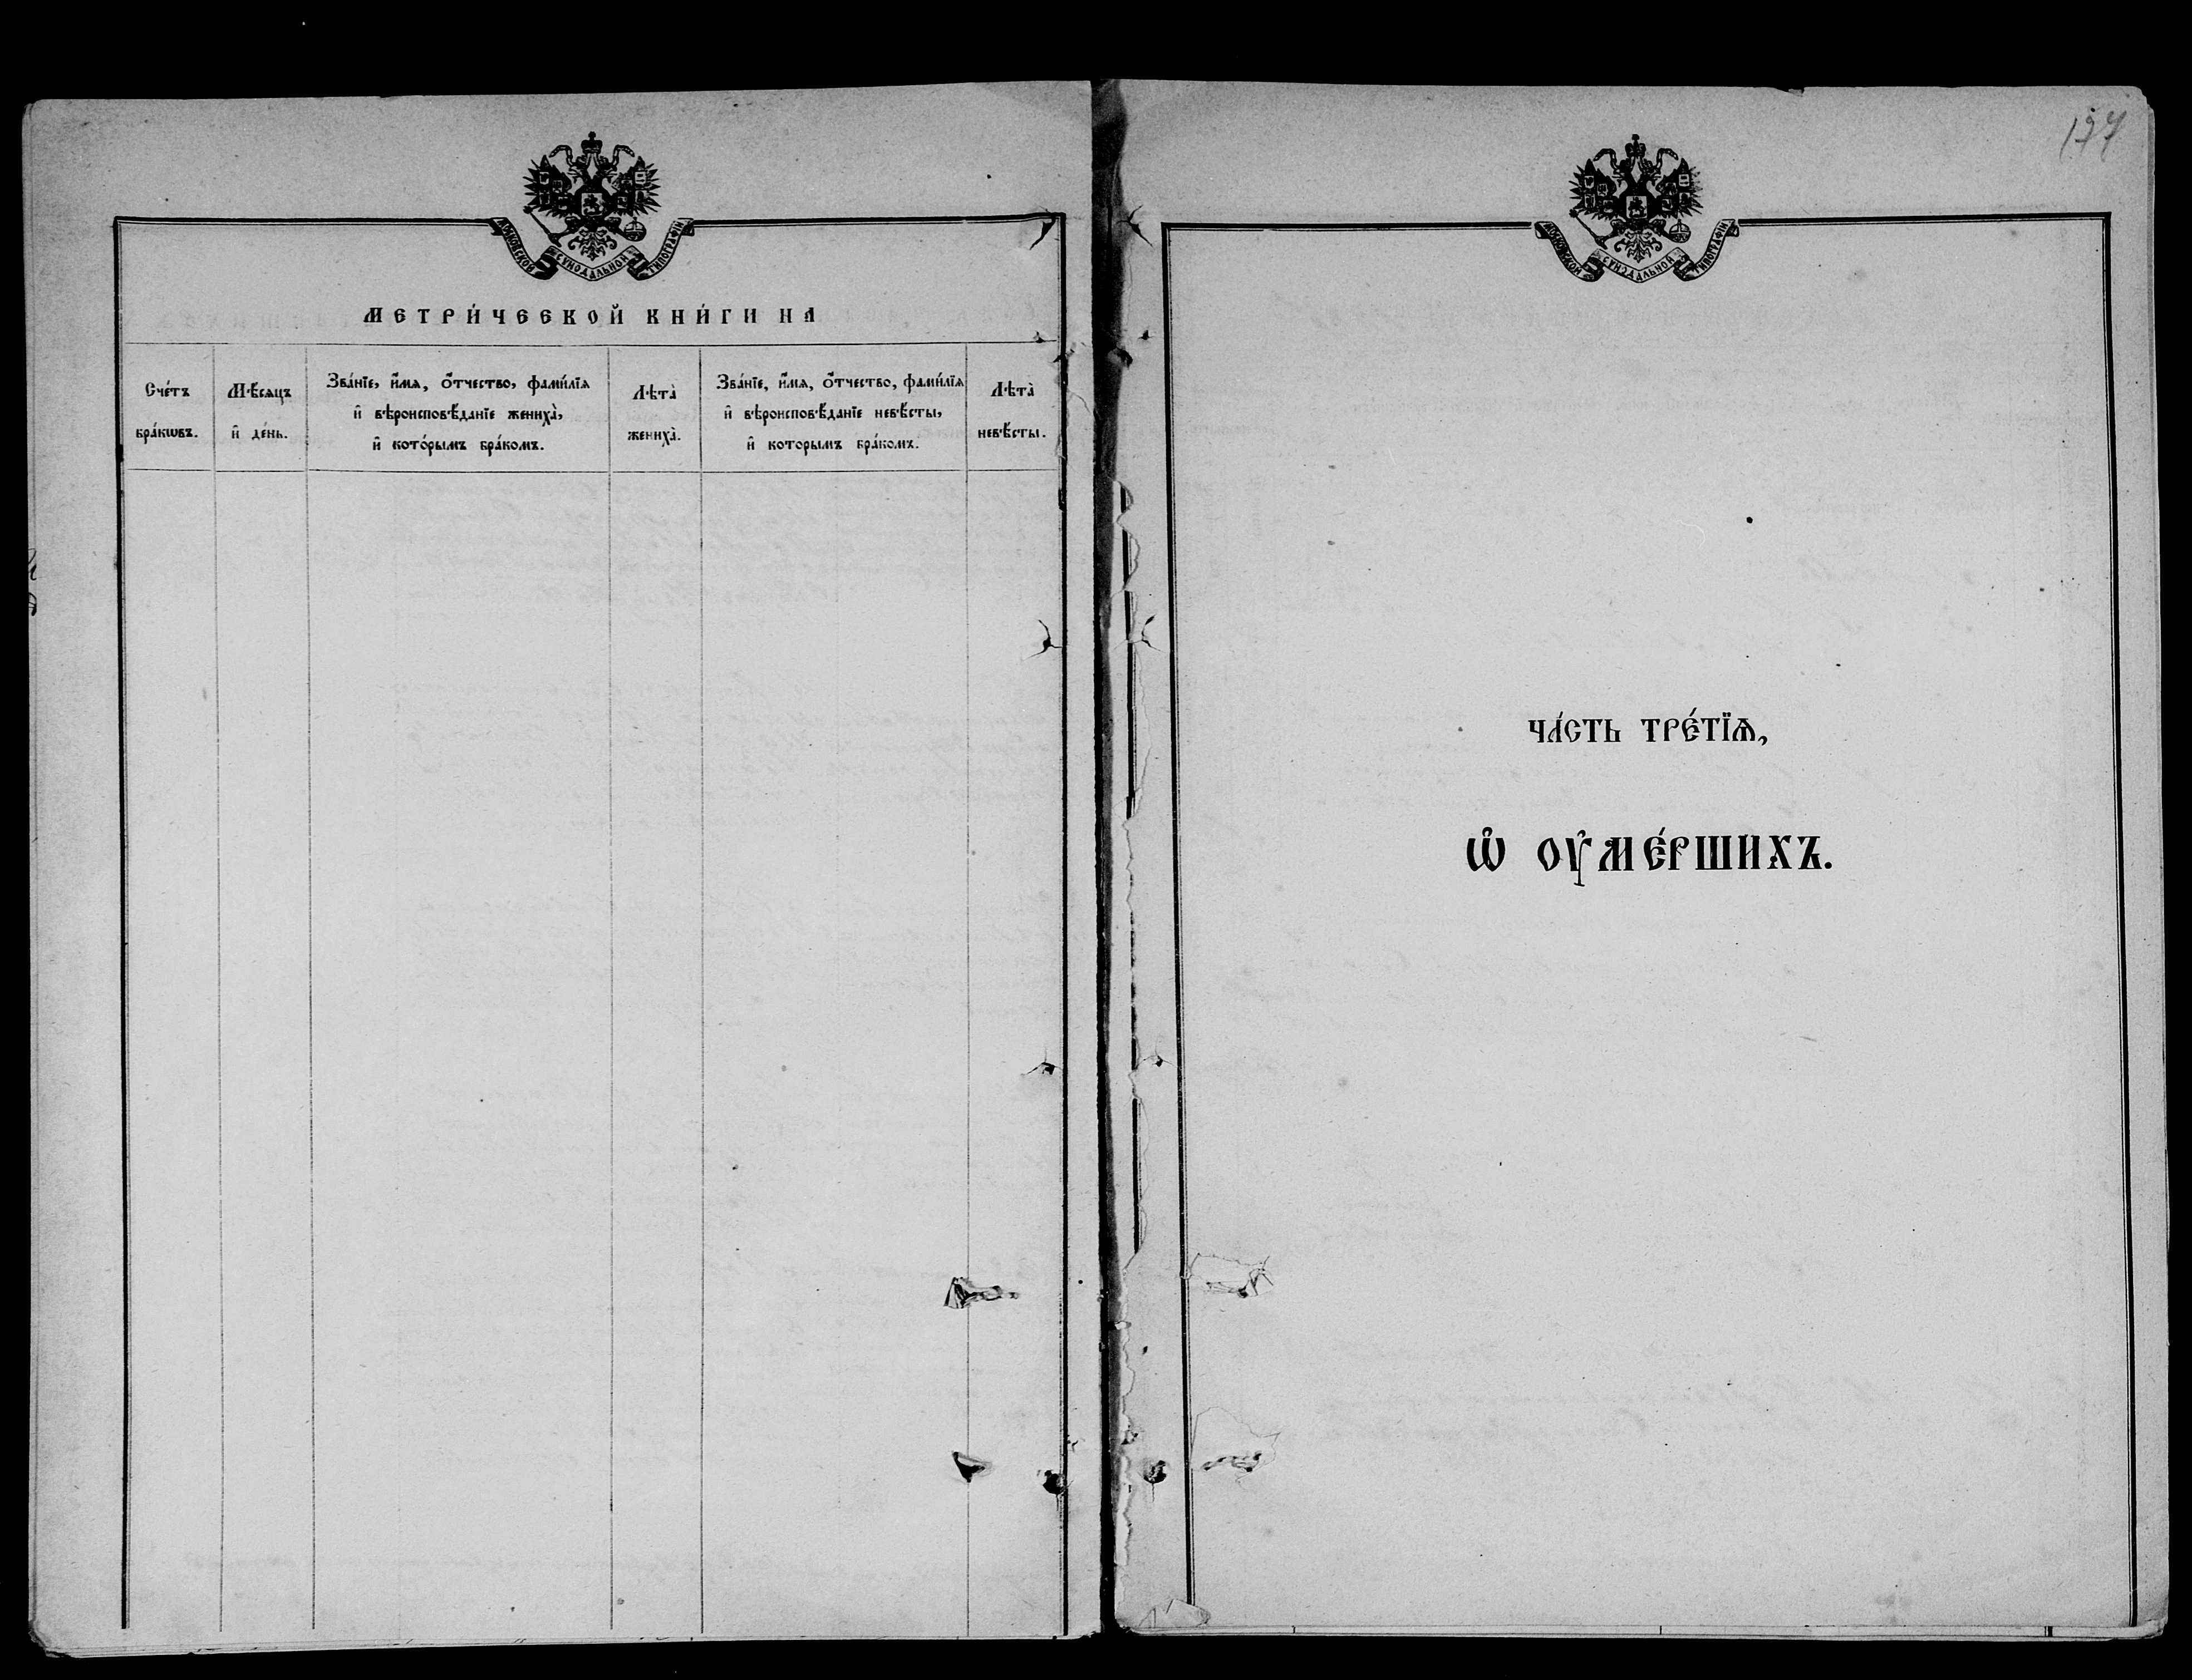 МОСКОВСКОЙ СУНОДАЛЬНОЙ ТИПОГРАФІИ
МЕТРИ́ЧЕСКОЙ КНИ́ГИ НА
Сче́тъ
бра́кѡвъ.
Мѣ́сяцъ
и҆ де́нь.
Зва́нїе, и҆́мѧ, ѻ҆́тчество, фами́лїѧ
и҆ вѣроисповѣ́данїе жениха̀,
и҆ кото́рымъ бра́комъ.
Лѣта̀
жениха̀.
Зва́нїе, и҆́мѧ, ѻ҆́тчество, фами́лїѧ
и҆ вѣроисповѣ́данїе невѣ́сты,
и҆ которымъ бра́комъ.
Лѣта̀
невѣ́сты.
МОСКОВСКОЙ СУНОДАЛЬНОЙ ТИПОГРАФІИ
ЧА́СТЬ ТРЕ́ТЇѦ,
Ѡ҆ ОУ҆МЕ́РШИХЪ.